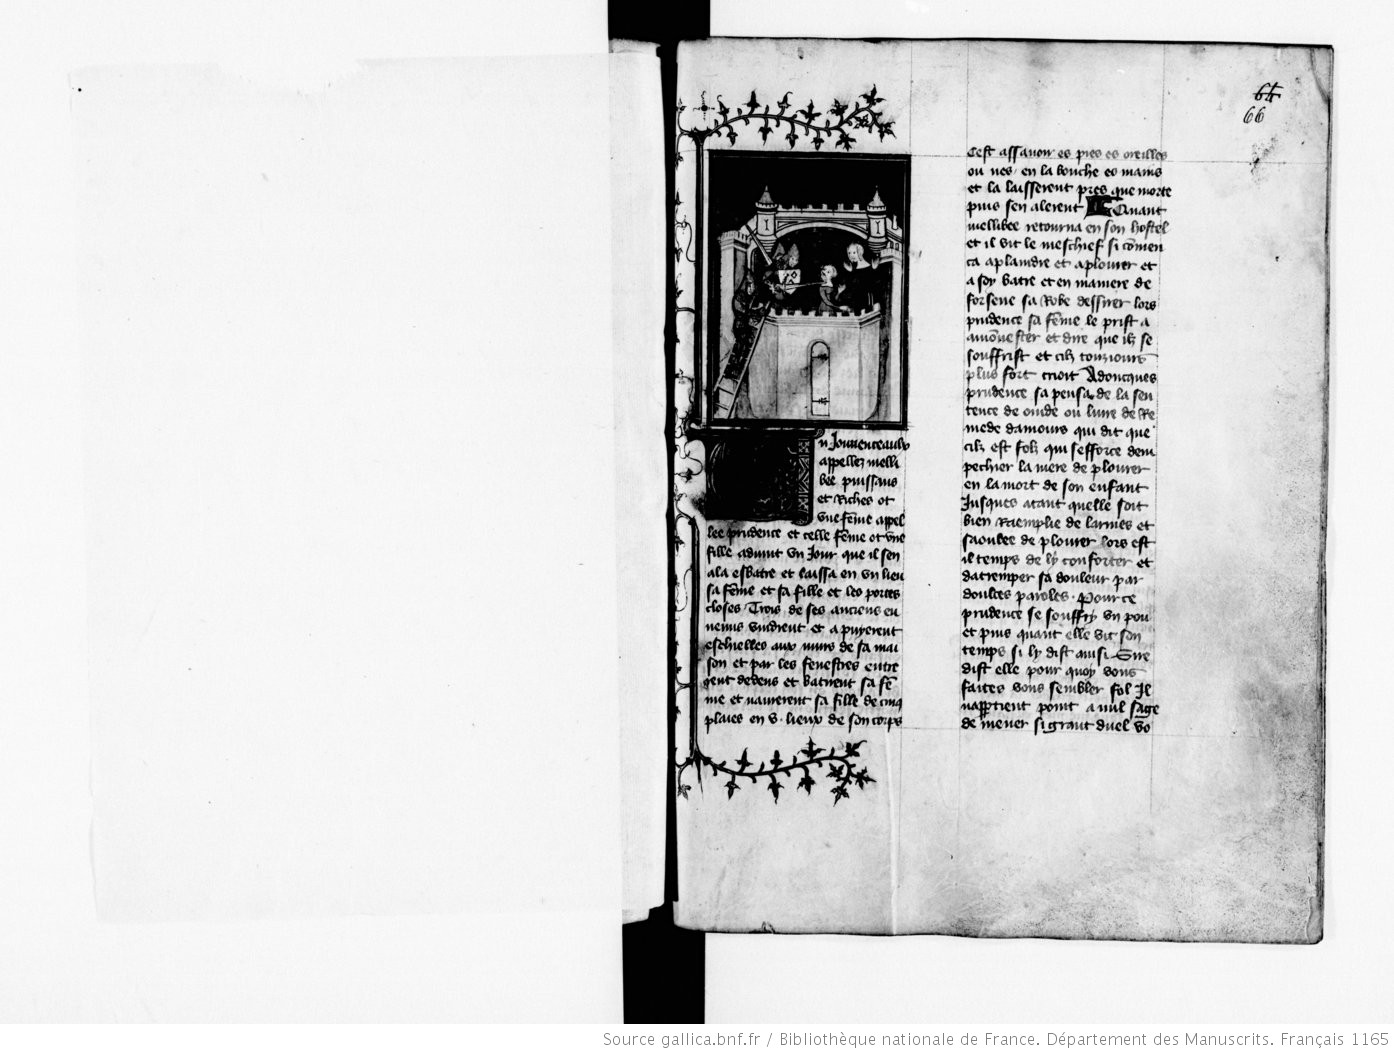 64
66
n Jouvenceaulx
appellez melli
bee puissans
et Riches ot
vne feme appel
lee prudence et celle feme ot vne
fille aduint vn Jour que il sen
ala esbatre et laissa en vn lieu
sa feme et sa fille et les portes
closes Trois de ses anciens en
nemis vindrent et apuyerent
eschielles aux murs de sa mai
son et par les fenestres entre
rent dedens et batirent sa fe
me et naurerent sa fille de cinq
plaies en v. lieux de son corps
Cest assauoir es pies es oreilles
ou nes en la bouche es mains
et la laisserent pres que morte
puis sen alerent Quant
mellibee retourna en son hostel
et il vit le meschief si comen
ca aplaindre et aplourer et
a soy batre et en maniere de
forsene sa Robe dessirer lors
prudence sa feme le prist a
amonester et dire que ilz se
souffrist et cilz tousiours
plus fort crioit Adoncques
prudence sa pensa de la sen
tence de ouide ou liure de Re
mede damours qui dit que
cilz est folz qui sefforce dem
pechier la mere de plourer
en la mort de son enfant
Jusques atant quelle soit
bien Raemplie de larmes et
saoulee de plourer lors est
il temps de ly conforter et
datremper sa douleur par
doulces paroles. Pour ce
prudence se souffry vn pou
et puis quant elle vit son
temps si ly dist ainsi Sire
dist elle pour quoy vous
faites vous sembler fol Il
nappartient point a nul sage
de mener si grant duel vo
Source gallica.bnf.fr / Bibliothèque nationale de France. Département des Manuscrits. Français 1165